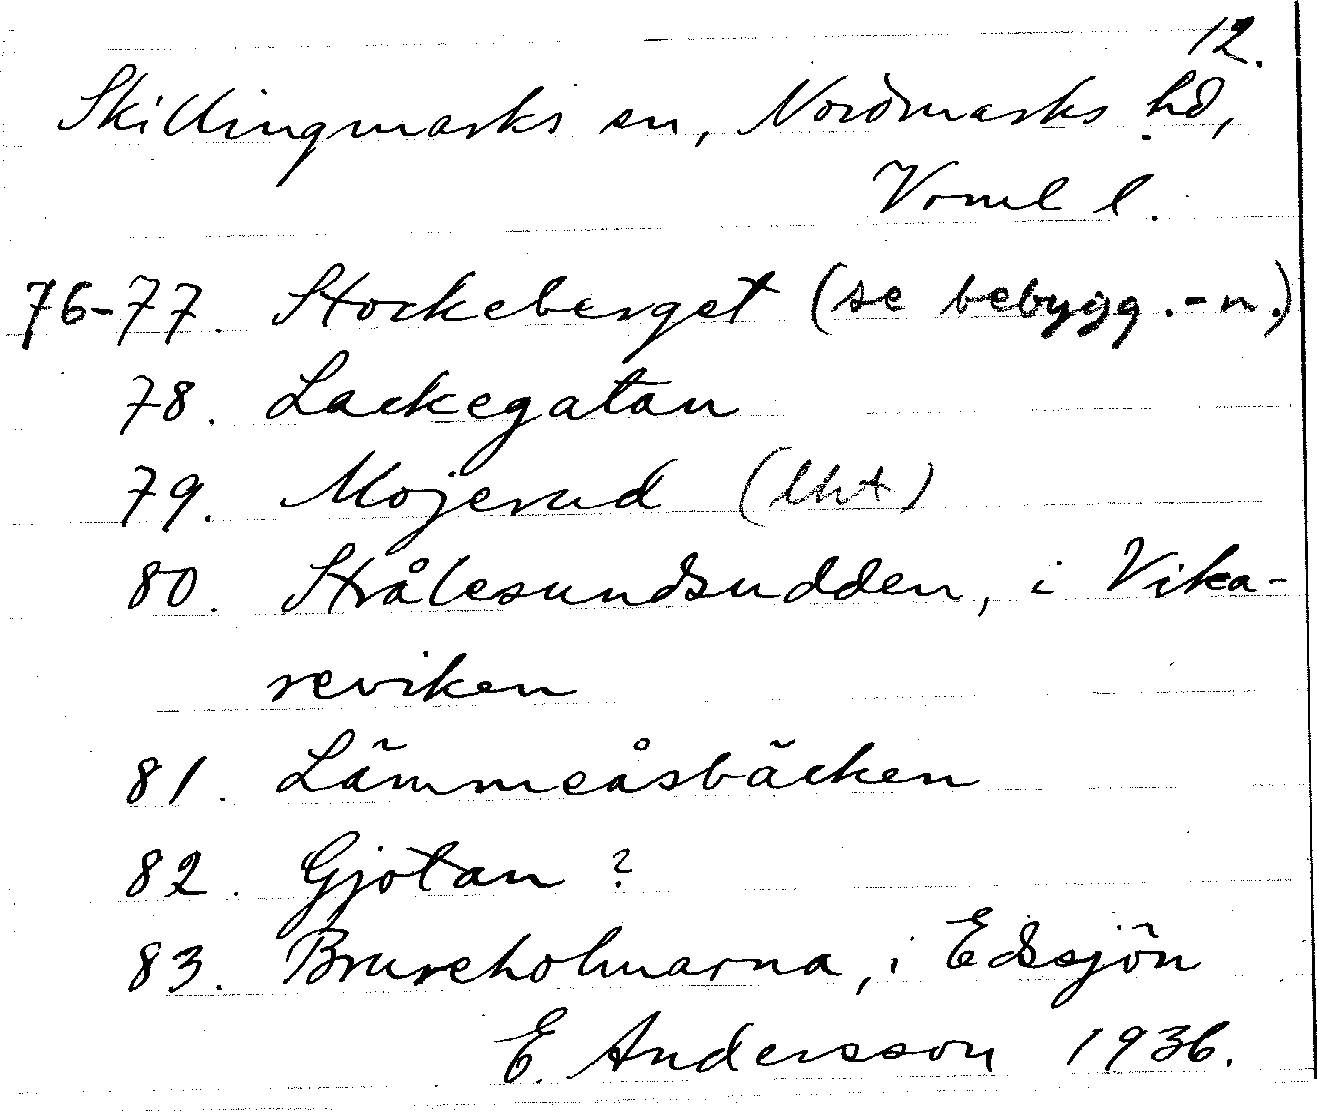 12.
Skillingmarks sn, Nordmarks hd,
Vrml l.
76-77. Stockeberget (se bebygg.-n.)
78. Lackegatan
79. Mojerud (lht)
80. Strålesundsudden, i Vika-
reviken
81. Lämmeåsbäcken
82. Gjötan ?
83. Brureholmarna, i Edsjön
E. Andersson 1936.